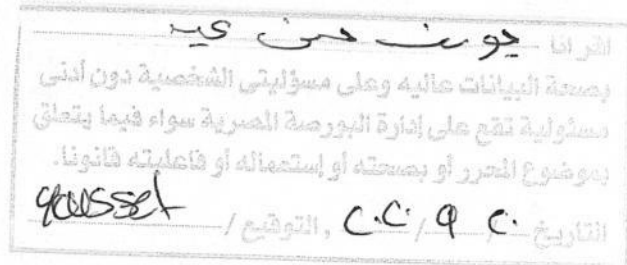 اقر انا يوسف حسن عيد
بصحة البيانات عاليه وعلى مسؤليتى الشخصية دون أدنى
مسئولية تقع على إدارة البورصة المصرية سواء فيما يتعلق
بموضوع المحرر أو بصحته أو إستعماله أو فاعليته قانونا.
التاريخ ٢٠ / ٩ / ٢٠٢٠ , التوقيع / youssef